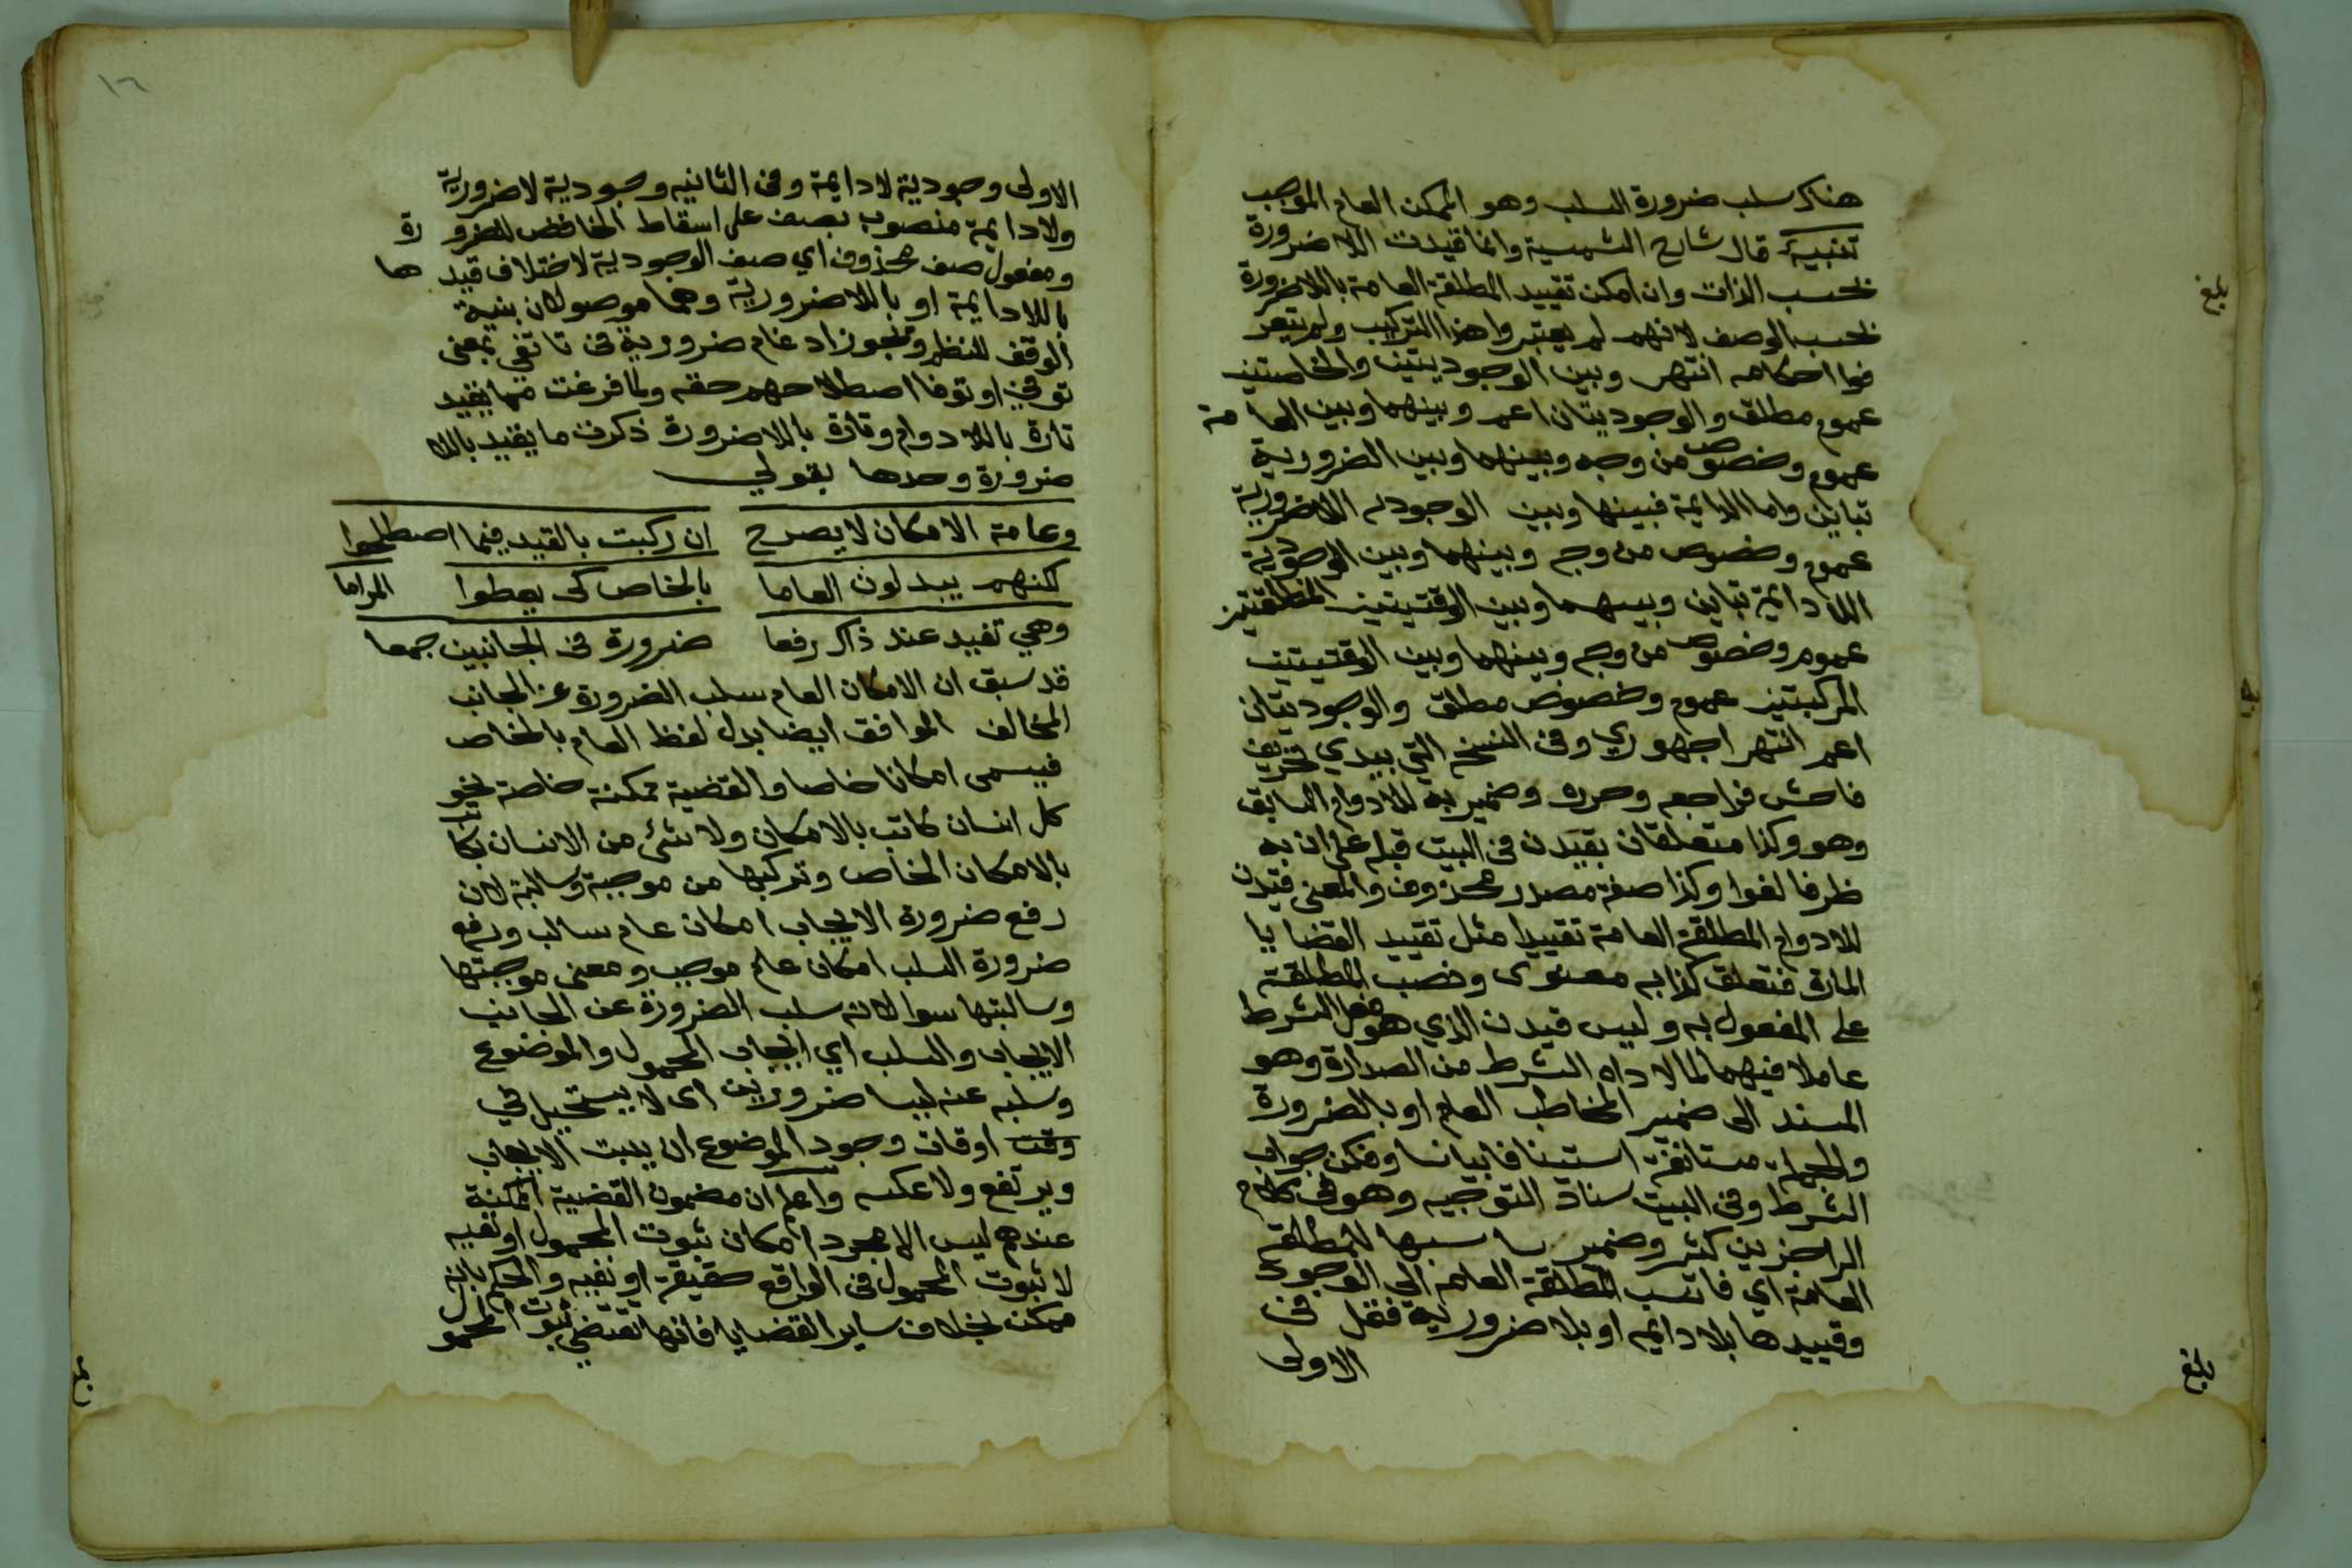 هناك سلب ضرورة السلب وهو الممكن العام الموجب
تنبيه قال شارح الشمسية وانما قيدت اللاضرورة
بحسب الذات وان امكن تقييد المطلقة العامة باللاضرورة
بحسب الوصف لانهم لم يعتبروا هذا التركيب ولم يتعر
ضوا احكامه انتهى وبين الوجوديتين والخاصتين
عموم مطلق والوجوديتان اعم وبينهما وبين العامة
عموم وخصوص من وجه وبينهما وبين الضرورية
تباين واما الدايمة فبينها وبين الوجوديه اللاضرورية
عموم وخصوص من وجه وبينهما وبين الوجودية
اللادايمة تباين وبينهما وبين الوقتيتين المطلقتين
عموم وخصوص من وجه وبينهما وبين الوقتيتين
المركبتين عموم وخصوص مطلق والوجوديتان
اعم انتهى اجهوري وفى النسخة التي بيدي تحريف
فاحش فراجعه وحرره وضمير به للادوام السابق
وهو وكذا متعلقان بقيدن فى البيت قبله على ان به
ظرفا لغوا وكذا صفة مصدر محذوف والمعنى قيدن
للادوام المطلقة العامة تقييدا مثل تقييد القضايا
المارة فتعلق كذا به معنوى ونصب المطلقة
على المفعول به وليس قيدن الذي هو فعل الشرط
عاملا فيهما لما لاداه الشرط من الصدارة وهو
المسند الى ضمير المخاطب العام او بالضرورة
والجملة مستانفة استينافا بيانيا وفكن جواب
الشرط وفى البيت سناد التوجيه وهو فى كلام
الراجزين كثير وضمير للمطلقة
العامة اي فانسب المطلقة العامة الي الوجودى
وقييدها بلا دايمه او بلا ضرورية فقل فى
الاولى
بلغ
بلغ
١٦
الاولى وجودية لا دايمة وفى الثانيه وجودية لا ضرورية
ولا دايمة منصوب بصف على اسقاط الخافض للضرورة
ومفعول صف محذوف اي صف الوجودية لاختلاف قيدها
باللادايمة او باللاضرورية وهما موصولان بنية
الوقف للنظم ويجوز ادغام ضرورية فى تا تفي بمعنى
توفي او توفا اصطلاحهم حقه ولما فرغت مما يقيد
تارة باللادوام وتارة باللاضرورة ذكرت ما يقيد باللا
ضرورة وحدها بقولي
وعامة الامكان لا يصرح ان ركبت بالقيد فيما اصطلحوا
لكنهم يبدلون العاما بالخاص كى يعطوا المراما
وهي تفيد عند ذاك رفعا ضرورة فى الجانبين جمعا
قد سبق ان الامكان العام سلب الضرورة عن الجانب
المخالف الموافق ايضا بدل لفظ العام بالخاص
فيسمى امكانا خاصا والقضية ممكنة خاصة نحو
كل انسان كاتب بالامكان ولا شئ من الانسان بكاتب
بالامكان الخاص وتركبها من موجبة وسالبة لان
رفع ضرورة الايجاب امكان عام سالب ورفع
ضرورة السلب امكان عام موجب ومعنى موجبتها
وسالبتها سوا لانه سلب الضرورة عن الجانب
الايجاب والسلب اي ايجاب المحمول والموضوع
وسلبه عنه ليسا ضروريين اى لا يستحيل في
وقت اوقات وجود الموضوع ان يثبت الايجاب
ويرتفع ولا عكسه واعلم ان مضمون القضية الممكنة
عندهم ليس الا مجرد امكان ثبوت المحمول او نفيه
لا ثبوت المحمول فى الواقع حقيقة او نفيه والحكم بانه
ممكن بخلاف ساير القضايا فانها تقتضي ثبوت المحمول